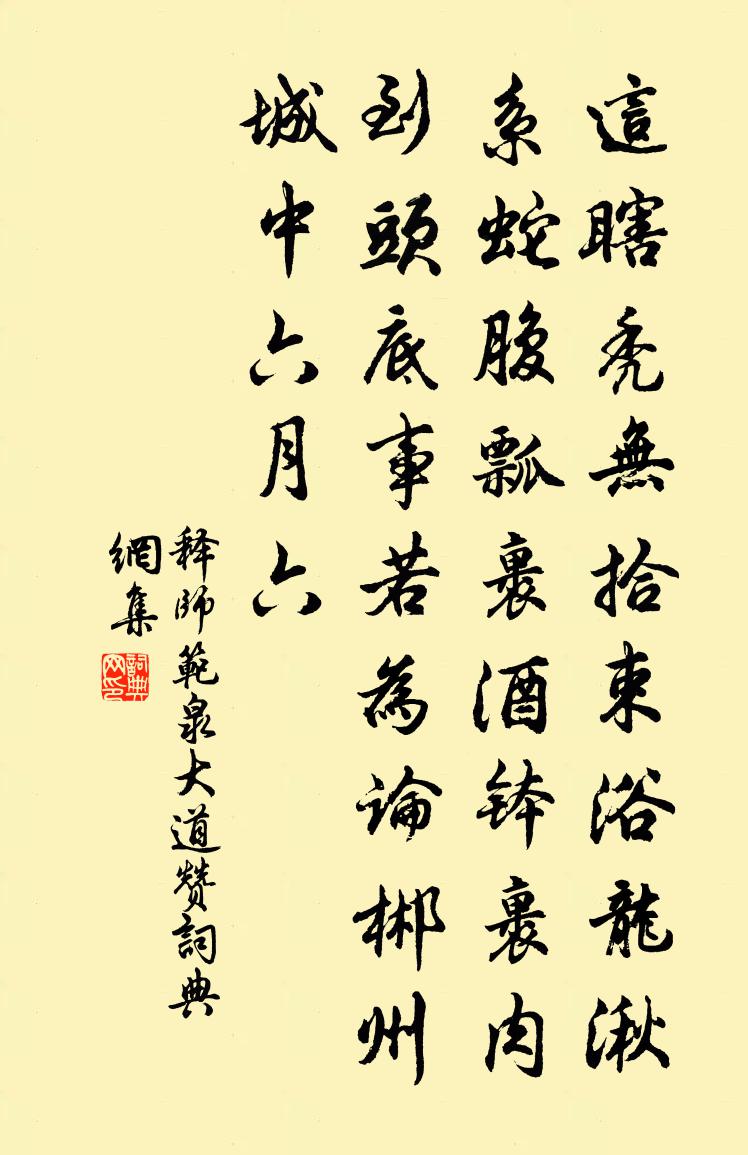 這瞎禿無拾束浴龍湫
系蛇腹瓢裹酒鉢裹肉
到頭底事若為論郴州
城中六月六
释師範泉大道贊詞典
網集
詞典網印